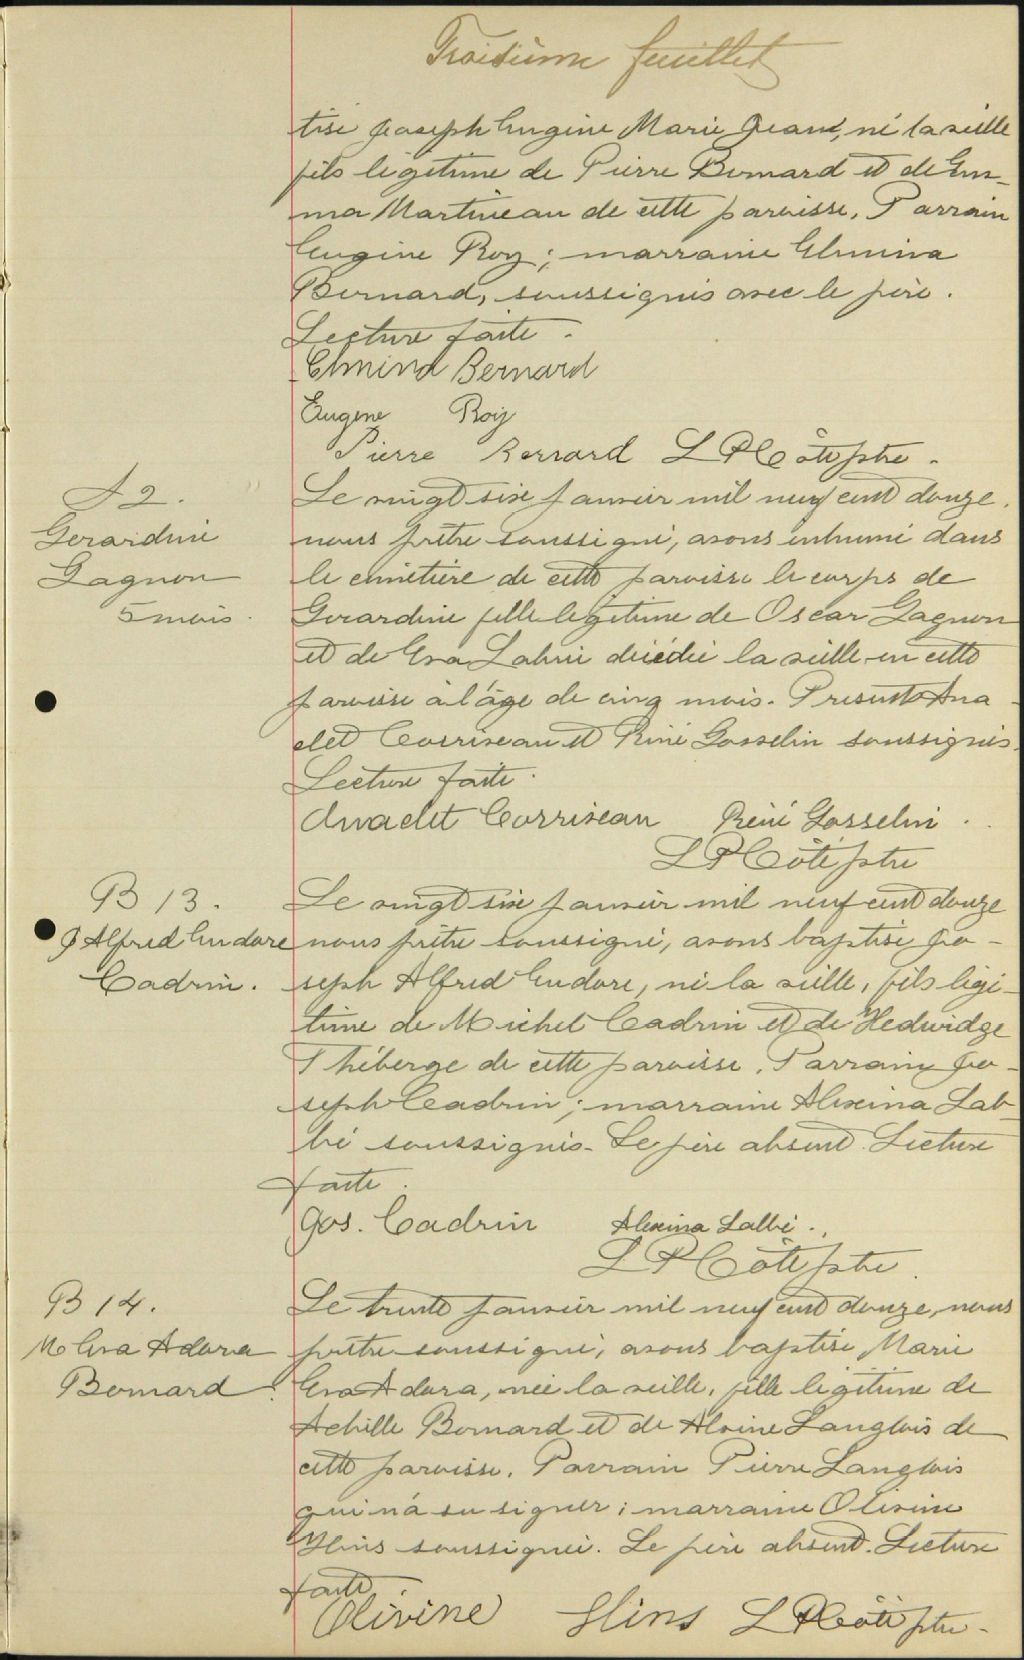 Troisième feuillet
tisé Joseph Eugène Marie Jean, né la veille
fils légitime de Pierre Bernard et de Em-
ma Martineau de cette paroisse. Parrain
Eugène Roy; marraine Elmina
Bernard, soussignés avec le père.
Lecture faite.
Elmina Bernard
Eugene Roy
Pierre Bernard L P Côté ptre.
S 2.
Gérardine
Gagnon
5 mois.
Le vingt six janvier mil neuf cent douze,
nous prêtre soussigné, avons inhumé dans
le cimetière de cette paroisse le corps de
Gérardine fille légitime de Oscar Gagnon
et de Eva décédée la veille en cette
paroisse à l'âge de cinq mois. Présents Ana
clet Corriveau et Réné Gosselin soussignés.
Lecture faite.
Anaclet Corriveau Réné Gosselin.
L P Côté ptre
B 13.
J Alfred Eudore
Cadrin.
Le vingt six janvier mil neuf cent douze
nous prêtre soussigné, avons baptisé Jo-
seph Alfred Eudore, né la veille, fils légi-
time de Michel Cadrin et de Hedwidge
Théberge de cette paroisse. Parrain Jo-
seph Cadrin; marraine Alexina Lab-
bé soussignés. Le père absent. Lecture
faite.
Jos. Cadrin Alexina Labbé.
L P Côté ptre.
B 14.
M Eva Adora
Bernard.
Le trente janvier mil neuf cent douze, nous
prêtre soussigné, avons baptisé Marie
Eva Adora, née la veille, fille légitime de
Achille Bernard et de Alvine Langlois de
cette paroisse. Parrain Pierre Langlois
qui n'a su signer; marraine Olivine
Hins soussignée. Le père absent. Lecture
faite
Olivine Hins L P Côté ptre.